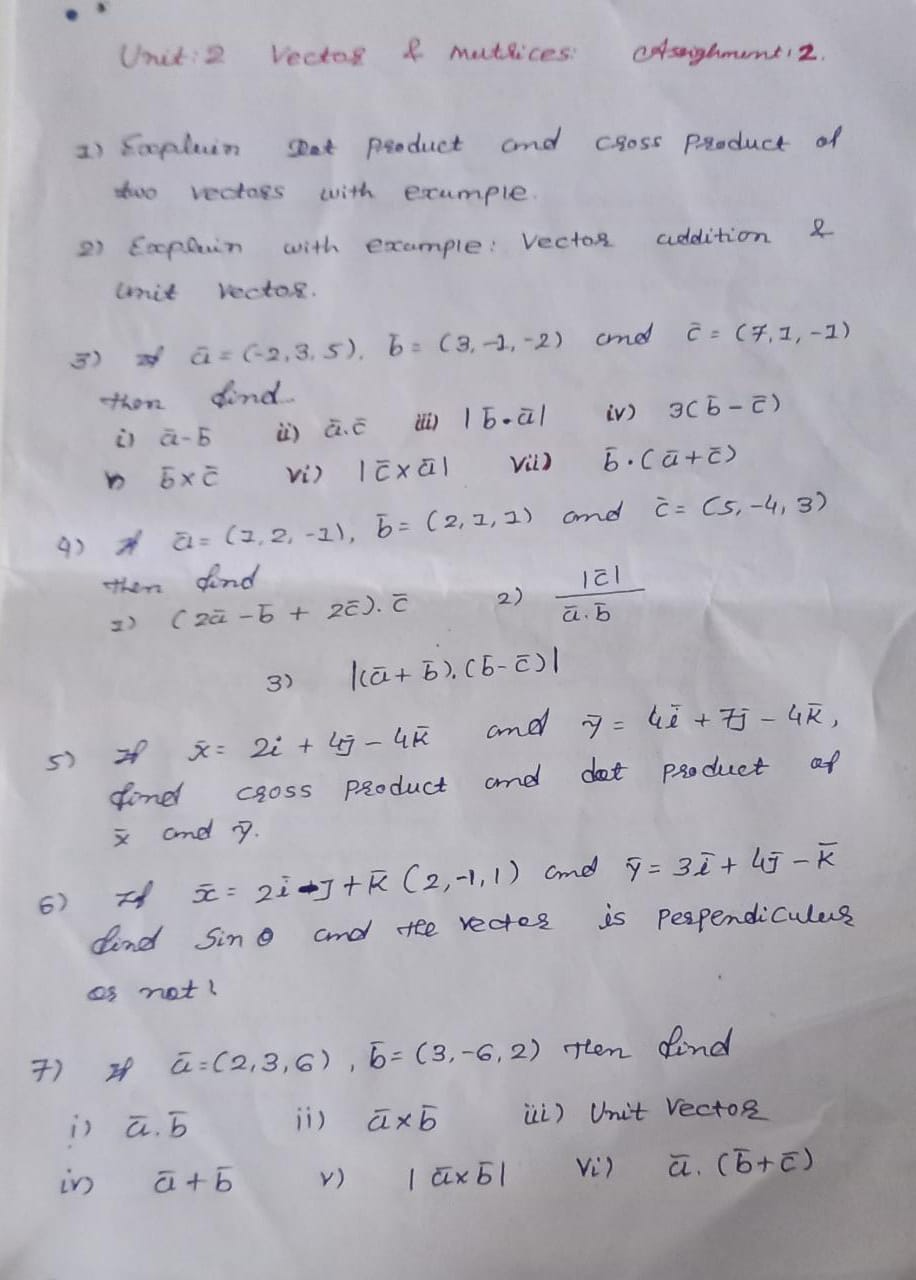 Unit: 2 Vector & Mutrices: Assighment: 2.
1) Explain Dot product and cross product of
two vectors with example.
2) Explain with example: Vector addition &
unit vector.
3) If ā = (-2, 3, 5), b̄ = (3, -1, -2) and c̄ = (7, 1, -1)
then find
i) ā - b̄ ii) ā.c̄ iii) |b̄.ā| iv) 3(b̄ - c̄)
v) b̄ × c̄ vi) |c̄ × ā| vii) b̄.(ā + c̄)
4) If ā = (1, 2, -1), b̄ = (2, 1, 1) and c̄ = (5, -4, 3)
then find
1) (2ā - b̄ + 2c̄).c̄ 2) |c̄| / ā.b̄
3) |(ā + b̄).(b̄ - c̄)|
5) If x̄ = 2i + 4j̄ - 4k̄ and ȳ = 4ī + 7j̄ - 4k̄,
find cross product and dot product of
x̄ and ȳ.
6) If x̄ = 2ī - J + k̄ (2, -1, 1) and ȳ = 3ī + 4j̄ - k̄
find Sin θ and the vector is perpendicular
or not?
7) If ā = (2, 3, 6), b̄ = (3, -6, 2) then find
i) ā.b̄ ii) ā × b̄ iii) Unit Vector
iv) ā + b̄ v) |ā × b̄| vi) ā.(b̄ + c̄)